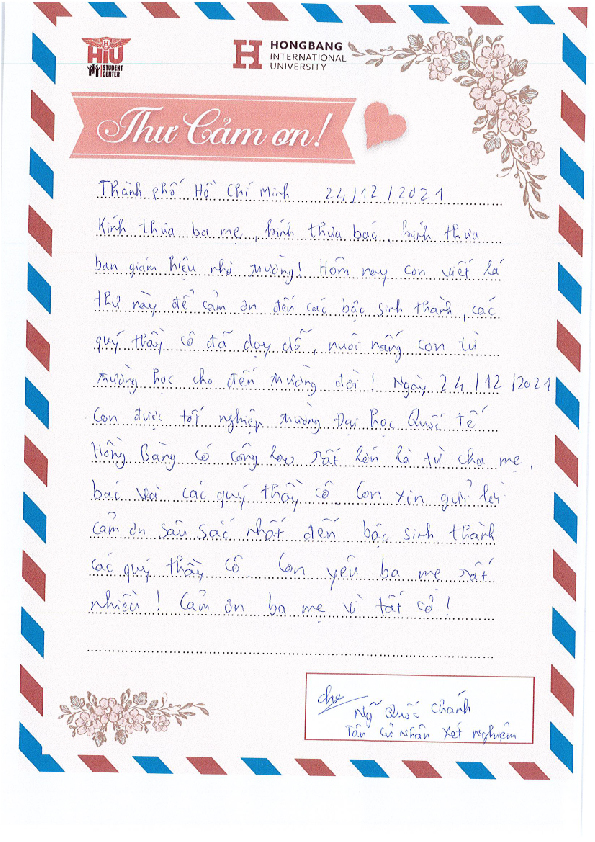 HIU
STUDENT
CENTER
HONGBANG
INTERNATIONAL
UNIVERSITY
Thư Cảm ơn!
Thành phố Hồ Chí Minh 24/12/2021
Kính thưa ba mẹ, kính thưa bác, kính thưa
ban giám hiệu nhà trường! Hôm nay con viết lá
thư này để cảm ơn đến các bậc sinh thành, các
quý thầy cô đã dạy dỗ, nuôi nấng con từ
trường học cho đến trường đời! Ngày 24/12/2021
Con được tốt nghiệp trường Đại học Quốc Tế
Hồng Bàng có công lao rất lớn là từ cha mẹ,
bác và các quý thầy cô. Con xin gửi lời
cảm ơn sâu sắc nhất đến bậc sinh thành
các quý thầy cô. Con yêu ba mẹ rất
nhiều! Cảm ơn ba mẹ vì tất cả!
Quốc Chánh
Tân Cử Nhân Xét nghiệm